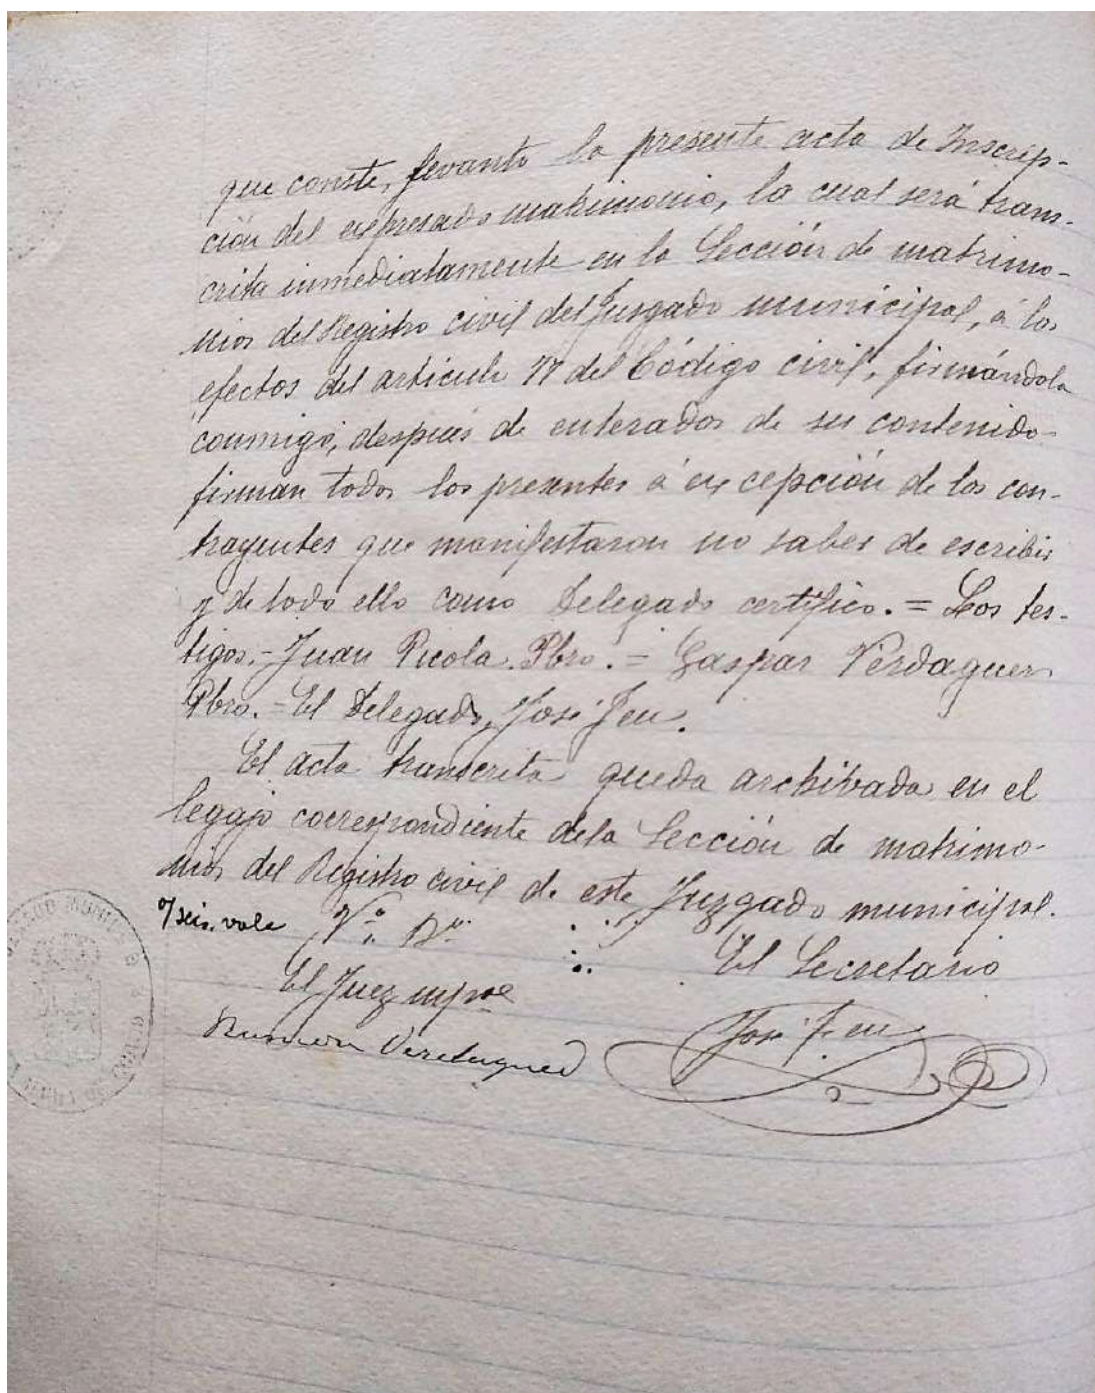 que conste, levanto la presente acta de Inscrip-
ción del expresado matrimonio, la cual será trans-
crita inmediatamente en la Sección de matrimo-
nios del Registro civil del Juzgado municipal, á los
efectos del articulo 77 del Código civil, firmándola
conmigo, después de enterados de su contenido
firman todos los presentes á excepción de los con-
trayentes que manifestaron no saber de escribir
y de todo ello como Delegado certifico. = Los tes-
tigos. - Juan Picola. Pbro. = Gaspar Verdaguer
Pbro. = El Delegado, José Feu.
El acta transcrita queda archibada en el
legajo correspondiente de la Sección de matrimo-
nios del Registro civil de este Juzgado municipal.
vale Vº Bº
El Secretario
El Juez mpal
José Feu
Ramon Verdaguer